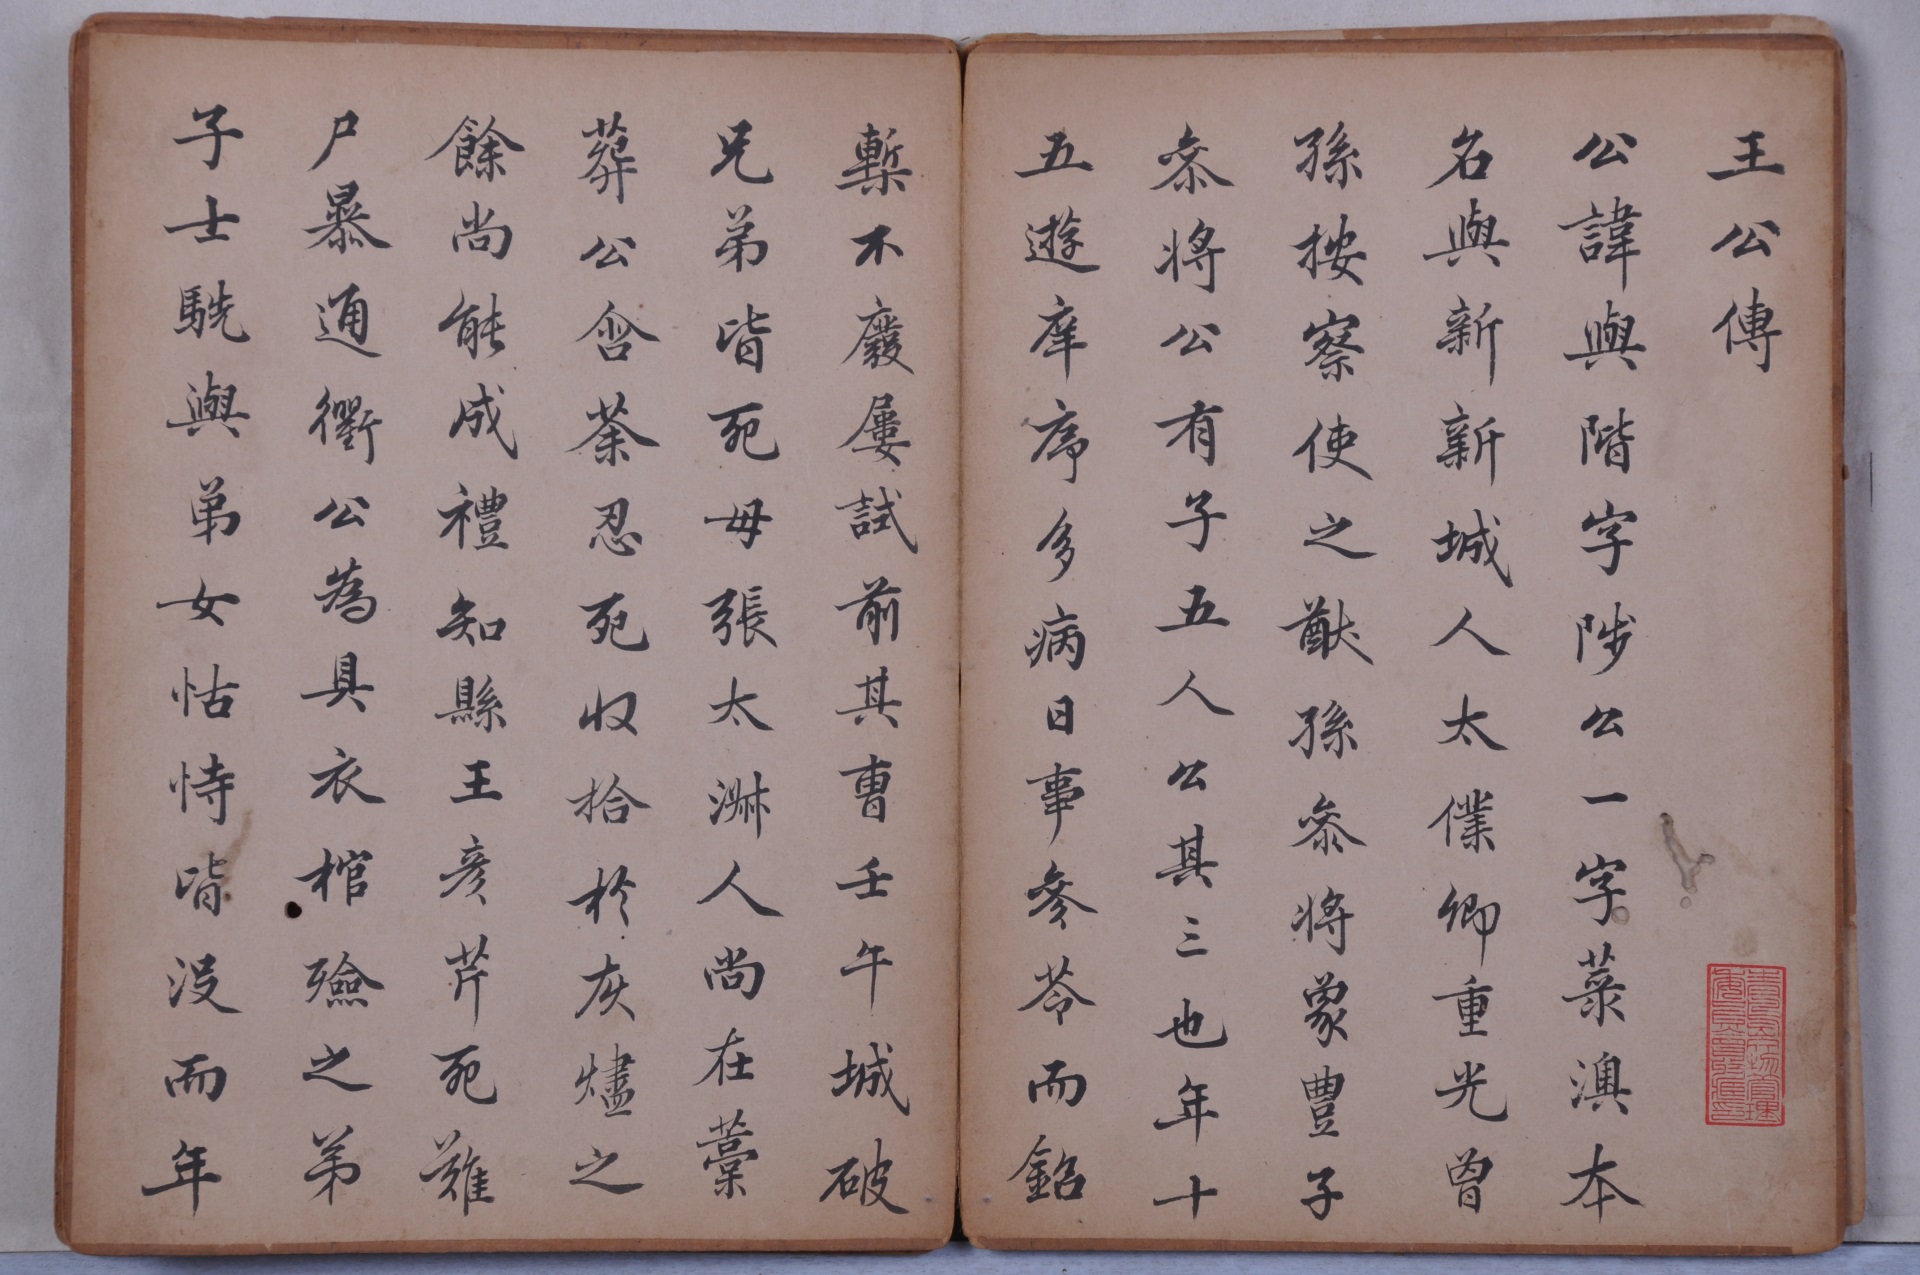 王公傳
公諱與階字陟公一字菉澳本
名與新新城人太僕卿重光曾
孫按察使之猷孫叅將象豊子
叅將公有子五人公其三也年十
五遊庠序多病日事參苓而鉛
槧不廢屢試前其曹壬午城破
兄弟皆死母張太淋人尚在藁
葬公含荼忍死收拾於灰燼之
餘尚能成禮知縣王彥芹死難
尸暴通衢公為具衣棺殮之弟
子士駪與弟女怙恃皆沒而年